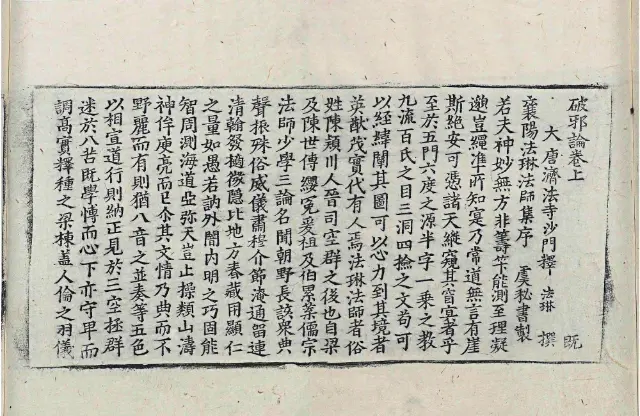 破邪論卷上
大唐濟法寺沙門釋法琳 撰 既
襄陽法琳法師集序 虞秘書製
若夫神妙無方非籌筭能測至理凝
邈豈繩准所知寔乃常道無言有崖
斯絕安可憑諸天縱窺其窅冥者乎
至於五門六度之源半字一乗之教
九流百氏之目三洞四撿之文苟可
以經緯闡其圖可以心力到其境者
英猷茂實代有人焉法琳法師者俗
姓陳頴川人晉司空群之後也自梁
及陳世傳纓冕爰祖及伯累業儒宗
法師少學三論名聞朝野長該衆典
聲振殊俗威儀肅穆介節海通留連
清翰發擿微隱比地方春藏用顯仁
之量如愚若訥外闇內明之巧固能
智周測海道亞弥天豈止操類山濤
神侔庾亮而已尒其文情乃典而不
野麗而有則猶八音之並奏等五色
以相宣道行則納正見於三空拯群
迷於八苦旣學愽而心下亦守卑而
調高實釋種之梁棟蓋人倫之羽儀